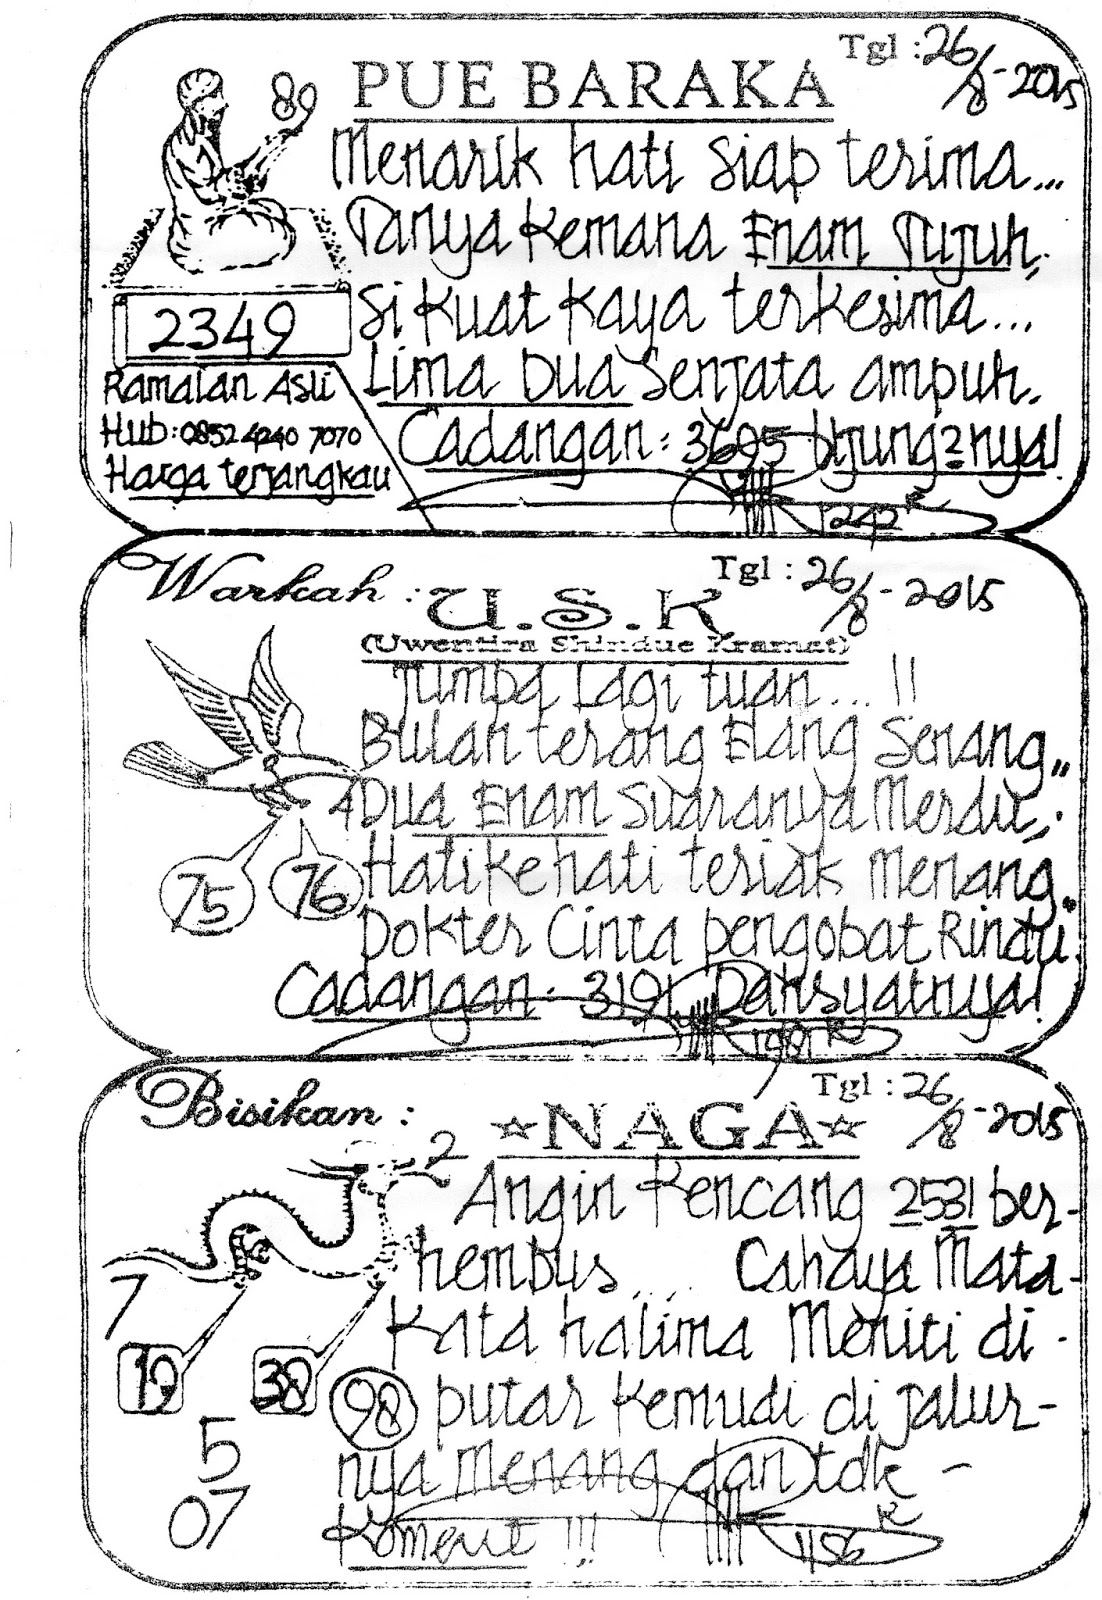 Tgl : 26/8-2015
PUE BARAKA
89
Menarik hati siap terima...
Tanya kemana Enam Tujuh,
Si kuat kaya terkesima...
Lima Dua Senjata ampuh.
Cadangan : 3695 Ujung2nya!
2349
Ramalan Asli
Hub : 0852 4240 7070
Harga terjangkau
1242
Tgl : 26/8-2015
Warkah : U.S.K
(Uwentira Shindue Kramat)
Jumpa Lagi tuan... !!
Bulan terang Elang Senang,,
Dua Enam Suaranya Merdu,
Hati ke hati teriak Menang.
Dokter Cinta pengobat Rindu.
Cadangan : 3191 Dahsyatnya!
4
75 76
1981
Tgl : 26/8-2015
Bisikan : ☆NAGA☆
2
Angin Kencang 2531 ber-
hembus.... Cahaya Mata-
Kata halima Meniti di -
putar Kemudi di jalur-
nya Menang dan tdk -
Koment !!!
7
19 38 98
5
07
1156